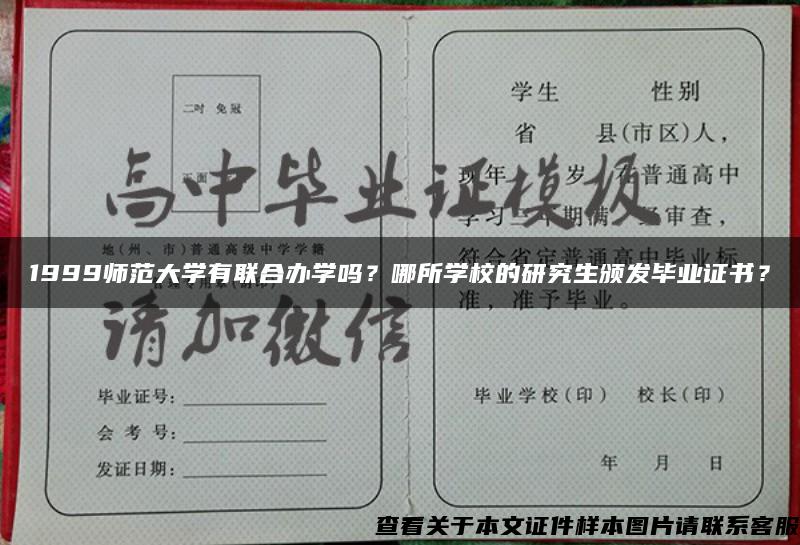 二吋 免冠
正面
高中毕业证模板
地(州、市)普通高级中学学籍
请加微信
毕业证号:
会考号:
发证日期:
学生 性别
省 县(市区)人,
现年 岁 在普通高中
符合省定普通高中毕业标
准,准予毕业。
毕业学校(印) 校长(印)
年 月 日
1999师范大学有联合办学吗？哪所学校的研究生颁发毕业证书？
查看关于本文证件样本图片请联系客服